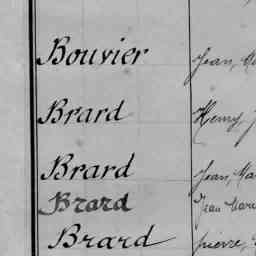 Bouvier Jean, Ma
Brard Henry, J
Brard Jean, Ma
Brard Jean Marie
Brard pierre,